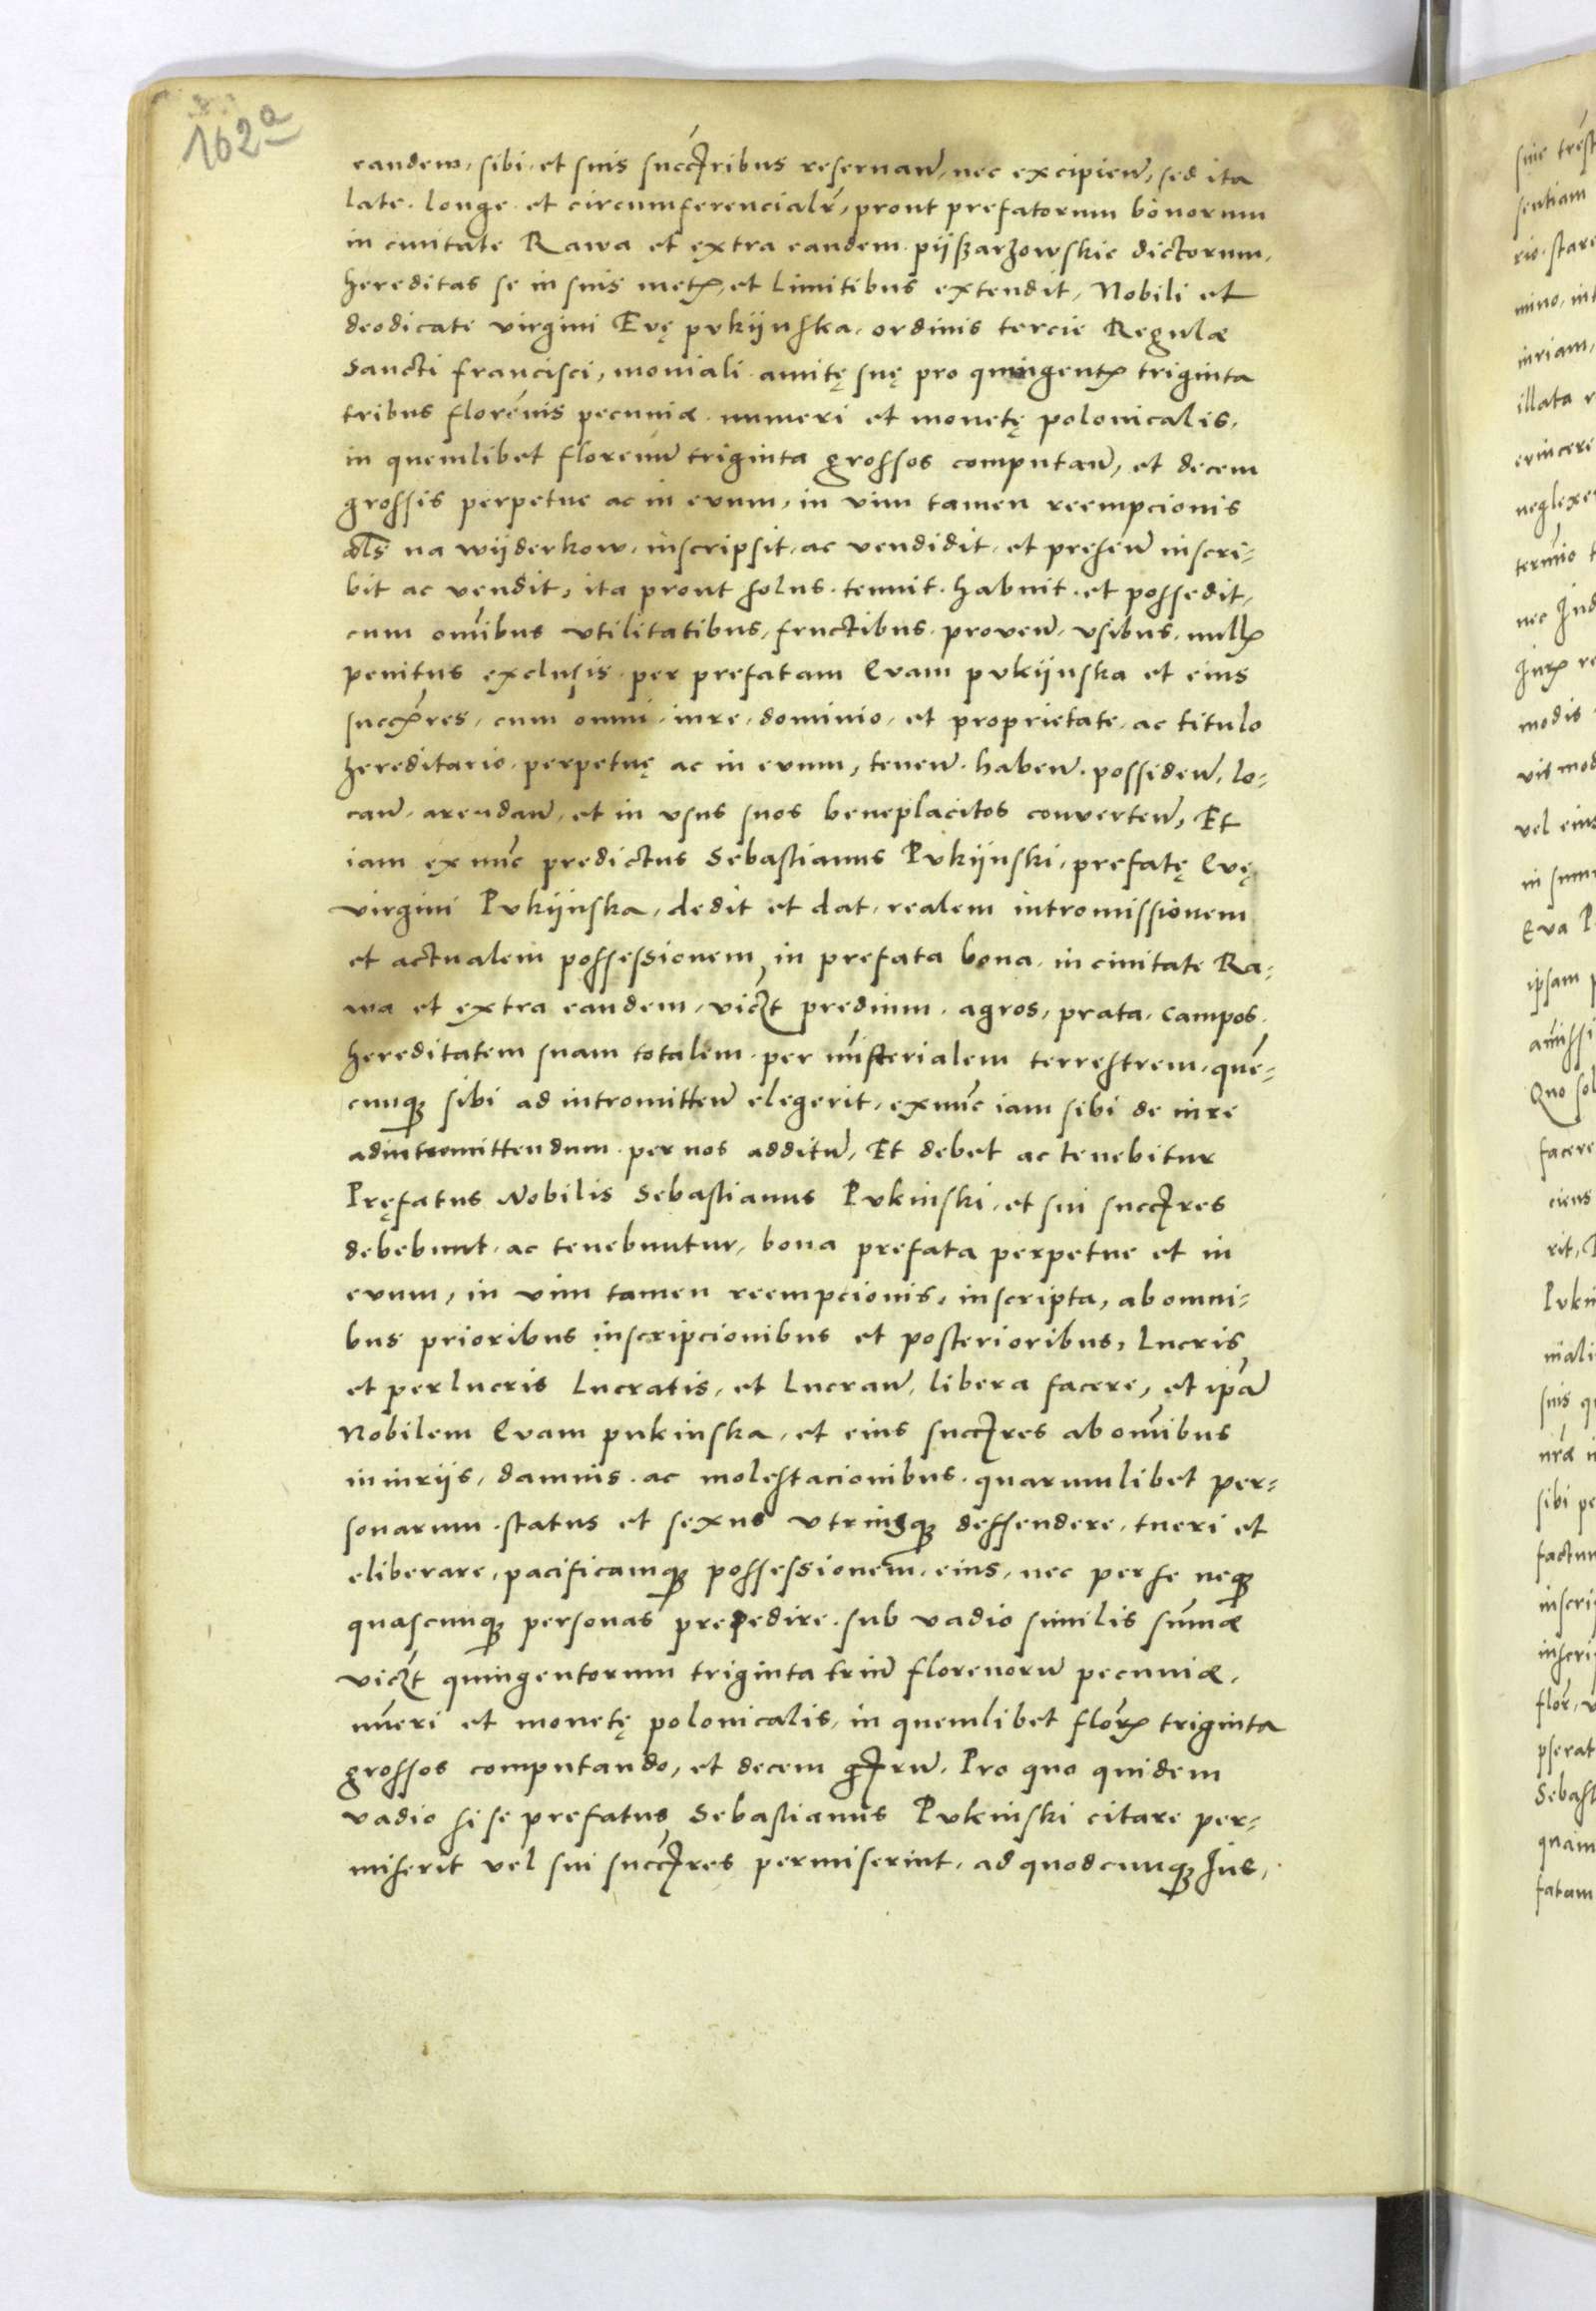 162a
eandem, sibi et suis succ̃ribus reseruañ, nec excipieñ, sed ita
late longe et circumferencialr̃, prout prefatorum bonorum
in ciuitate Rawa et extra eandem pijssarzowskie dictorum,
hereditas se in suis metꝭ, et limitibus extendit, Nobili et
deodicate virgini Evę pvkijnska, ordinis tercie Regulæ
Sancti francisci, moniali amitę suę pro quingentꝭ triginta
tribus florenis pecuniæ numeri et monetę polonicalis,
in quemlibet florenũ triginta grossos computañ, et decem
grossis perpetue ac in evum, in vim tamen reempcionis
als̃ na wijderkow, inscripsit, ac vendidit, et preseñ inscri-
bit ac vendit, ita prout solus tenuit habuit et possedit,
cum om̃ibus vtilitatibus, fructibus proveñ, vsibus, nullꝭ
penitus exclusis per prefatam Evam pvkijnska et eius
succ̃res, cum omni iure, dominio, et proprietate ac titulo
hereditario perpetuę ac in evum, teneñ habeñ possideñ, lo-
cañ, arendañ, et in vsus suos beneplacitos converteñ, Et
iam ex nũc predictus Sebastianus Pvkijnski, prefatę Evę
virgini Pvkijnska, dedit et dat, realem intromissionem
et actualem possessionem, in prefata bona, in ciuitate Ra-
wa et extra eandem, viczt predium agros, prata, campos
hereditatem suam totalem per mĩsterialem terrestrem, quẽ-
cunqꝫ sibi ad intromitteñ elegerit, exnũc iam sibi de iure
adintromittendum per nos additũ, Et debet ac tenebitur
Pręfatus Nobilis Sebastianus Pvkinski, et sui succ̃res
debebunt ac tenebuntur, bona prefata perpetue et in
evum, in vim tamen reempcionis, inscripta, ab omni-
bus prioribus inscripcionibus et posterioribus, lucris
et perlucris lucratis, et lucrañ, libera facere, et ip̃ã
Nobilem Evam pukinska, et eius succ̃res ab om̃ibus
iniuriis, damnis ac molestacionibus quarumlibet per-
sonarum status et sexus vtriusqꝫ deffendere, tueri et
eliberare, pacificamqꝫ possessionem̃, eius, nec per se neqꝫ
quascunqꝫ personas prepedire sub vadio similis sum̃æ
viczt quingentorum triginta triũ florenorũ pecuniæ,
nũeri et monetę polonicalis, in quemlibet flor̃ꝭ triginta
grossos computando, et decem gr̃rũ, Pro quo quidem
vadio si se prefatus Sebastianus Pvkinski citare per-
miserit vel sui succ̃res permiserint, ad quodcunqꝫ Ius,